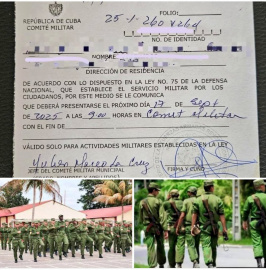 REPÚBLICA DE CUBA
COMITÉ MILITAR
FOLIO:
No. DE IDENTIDAD
NOMBRE
DIRECCIÓN DE RESIDENCIA
DE ACUERDO CON LO DISPUESTO EN LA LEY No. 75 DE LA DEFENSA
NACIONAL, QUE ESTABLECE EL SERVICIO MILITAR POR LOS
CIUDADANOS, POR ESTE MEDIO SE LE COMUNICA
QUE DEBERÁ PRESENTARSE EL PRÓXIMO DÍA 17 DE Sept
2025 A LAS 9:00 HORAS EN Comit Militar
CON EL FIN DE
VÁLIDO SOLO PARA ACTIVIDADES MILITARES ESTABLECIDAS EN LA LEY
JEFE DEL COMITÉ MILITAR MUNICIPAL
FIRMA Y CUÑO